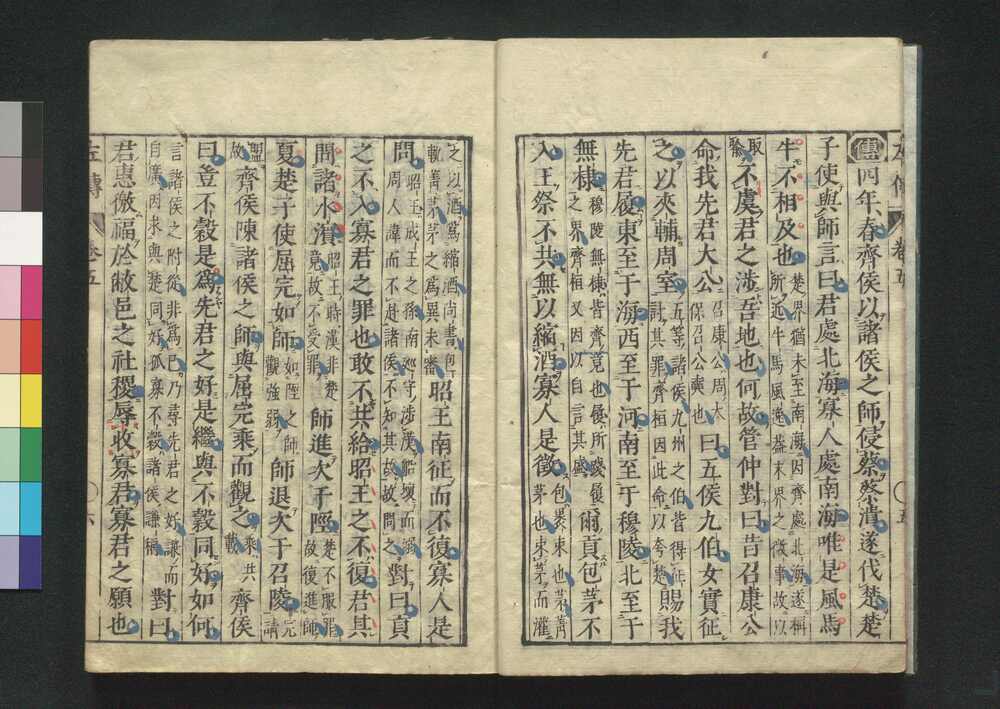 左傳 卷五 ○五
傳四年春齊侯以諸侯之師侵蔡蔡潰遂伐楚楚
子使與師言曰君處北海寡人處南海唯是風馬
牛不相及也楚界猶未至南海因齊處北海遂稱所近牛馬風逸蓋末界之微事故以
取喻不虞君之涉吾地也何故管仲對曰昔召康公
命我先君大公召康公周大保召公奭也曰五侯九伯女實征
之以夾輔周室五等諸侯九州之伯皆得征討其罪齊桓因此命以夸楚賜我
先君履東至于海西至于河南至于穆陵北至于
無棣穆陵無棣皆齊竟也履所踐履之界齊桓又因以自言其盛爾貢包茅不
入王祭不共無以縮酒寡人是徵包裹束也茅菁茅也束茅而灌
之以酒爲縮酒尚書包匭菁茅茅之爲異未審昭王南征而不復寡人是
問昭王成王之孫南巡守涉漢船壞而溺周人諱而不赴諸侯不知其故故問之對曰貢
之不入寡君之罪也敢不共給昭王之不復君其
問諸水濱昭王時漢非楚竟故不受罪師進次于陘楚不服罪故復進師
夏楚子使屈完如師如陘之師觀強弱師退次于召陵完請
盟故齊侯陳諸侯之師與屈完乘而觀之乘共載齊侯
曰豈不穀是爲先君之好是繼與不穀同好如何
言諸侯之附從非爲己乃尋先君之好謙而自廣因求與楚同好孤寡不穀諸侯謙稱對曰
君惠徼福於敝邑之社稷辱收寡君寡君之願也
左傳 卷五 ○六